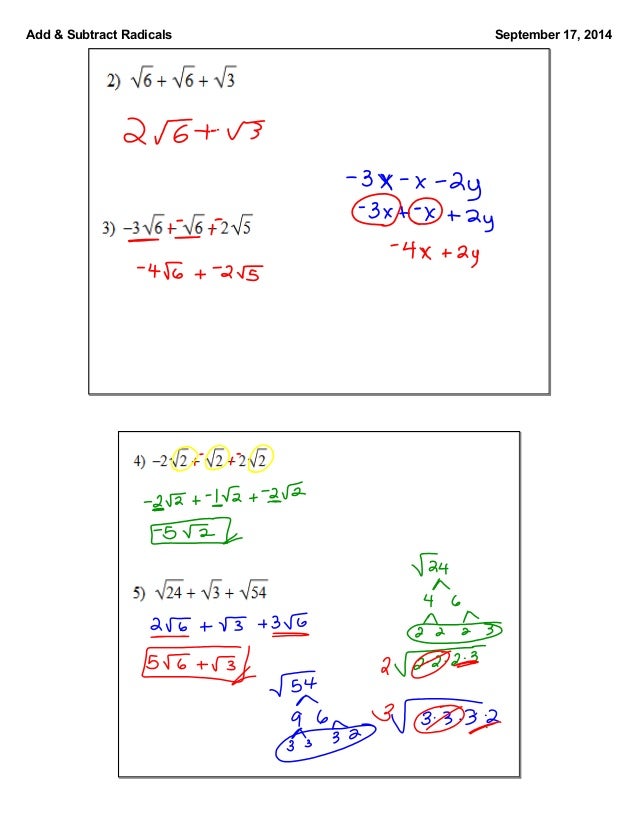 Add & Subtract Radicals September 17, 2014
2) √6 + √6 + √3
2√6 + √3
-3x - x - 2y
-3x + -x + 2y
-4x + 2y
3) −3√6 + -√6 + -2√5
-4√6 + -2√5
4) −2√2 + -√2 + -2√2
-2√2 + -1√2 + -2√2
-5√2
5) √24 + √3 + √54
2√6 + √3 + 3√6
5√6 + √3
√24
4 6
2 2 2 3
2√2·2·2·3
√54
9 6
3 3 3 2
3√3·3·3·2